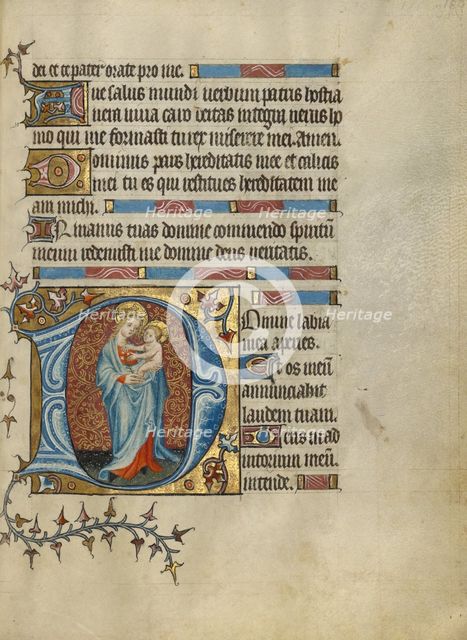 dei et te pater orate pro me.
Ave salus mundi verbum patris hostia
viva caro deitas integra verus ho
mo qui me formasti tu rex miserere mei. Amen.
Dominus pars hereditatis mee et calicis
mei tu es qui restitues hereditatem me
am michi.
In manus tuas domine commendo spiritum
meum redemisti me domine deus veritatis.
Domine labia
mea aperies.
Et os meum
annunciabit
laudem tuam.
Deus in ad
iutorium meum
intende.
Heritage
Heritage
Heritage
Heritage
Heritage
Heritage
Heritage
Heritage